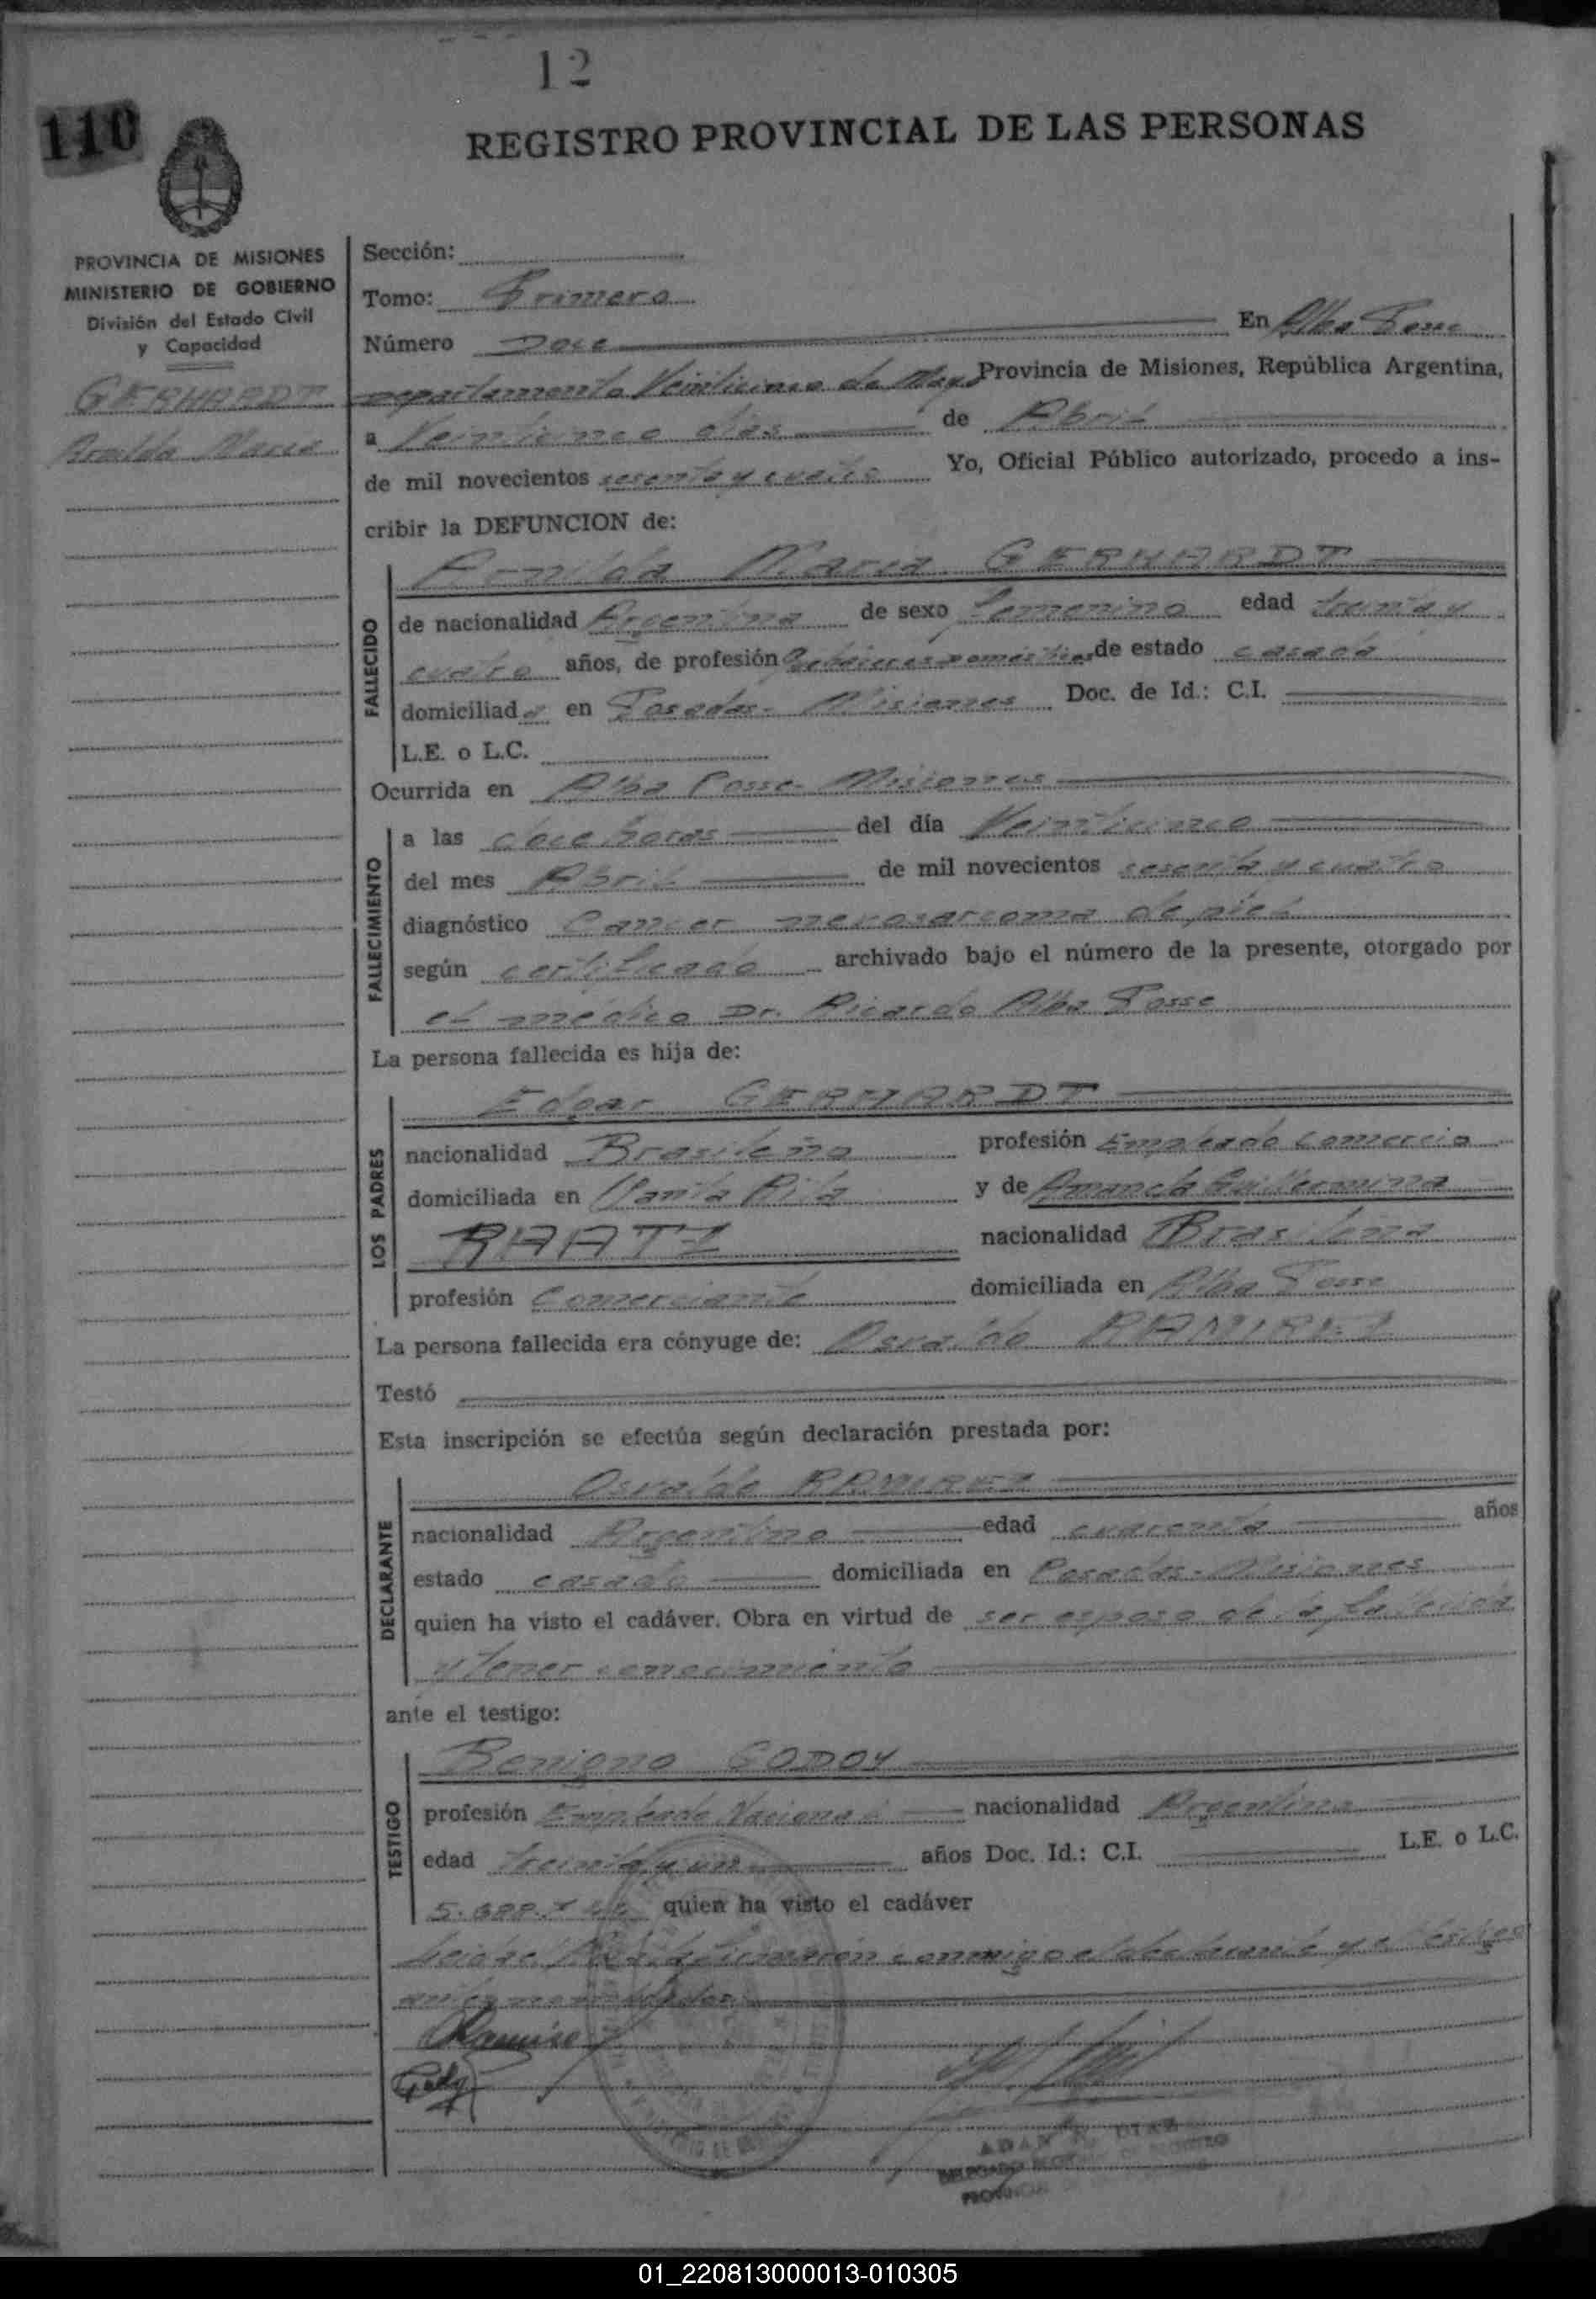 12
110
REGISTRO PROVINCIAL DE LAS PERSONAS
PROVINCIA DE MISIONES
MINISTERIO DE GOBIERNO
División del Estado Civil
y Capacidad
GERHARDT
Maria
Sección:
Tomo: Primero
Número Doce En Alba Posse
departamento Veinticinco de Mayo Provincia de Misiones, República Argentina,
a Veinticinco días de Abril
de mil novecientos sesenta y cuatro Yo, Oficial Público autorizado, procedo a ins-
cribir la DEFUNCION de:
Maria GERHARDT
FALLECIDO
de nacionalidad Argentina de sexo femenino edad treinta y
cuatro años, de profesión Quehaceres domésticos de estado casada
domiciliada en Posadas - Misiones Doc. de Id.: C.I.
L.E. o L.C.
Ocurrida en Alba Posse - Misiones
FALLECIMIENTO
a las doce horas del día Veinticinco
del mes Abril de mil novecientos sesenta y cuatro
diagnóstico Cancer de piel
según certificado archivado bajo el número de la presente, otorgado por
el médico Dr. Ricardo Alba Posse
La persona fallecida es hija de:
Edgar GERHARDT
LOS PADRES
nacionalidad Brasileña profesión Empleado Comercio
domiciliada en Santa Rita y de Amanda Guillermina
RAATZ nacionalidad Brasileña
profesión Comerciante domiciliada en Alba Posse
La persona fallecida era cónyuge de: Osvaldo RAMIREZ
Testó
Esta inscripción se efectúa según declaración prestada por:
Osvaldo RAMIREZ
DECLARANTE
nacionalidad Argentino edad cuarenta años
estado casado domiciliada en Posadas - Misiones
quien ha visto el cadáver. Obra en virtud de ser esposo de la fallecida
y tener conocimiento
ante el testigo:
Benigno GODOY
TESTIGO
profesión Empleado Nacional nacionalidad Argentina
edad treinta y un años Doc. Id.: C.I. L.E. o L.C.
quien ha visto el cadáver
Leida el Acta, la firmaron conmigo el declarante y el testigo
Ramirez
Godoy
ADAN DIAZ
01_220813000013-010305